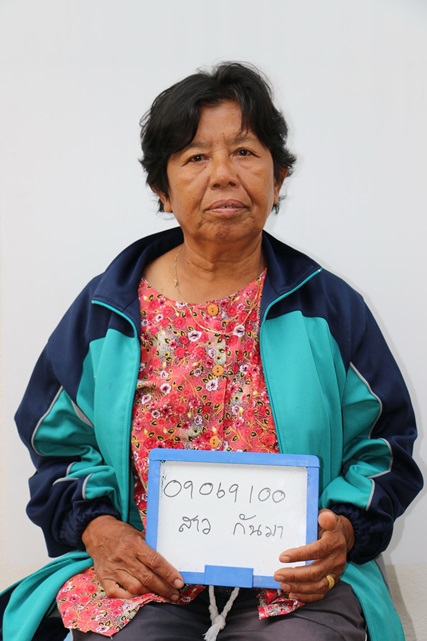 09069100
สาว กันมา